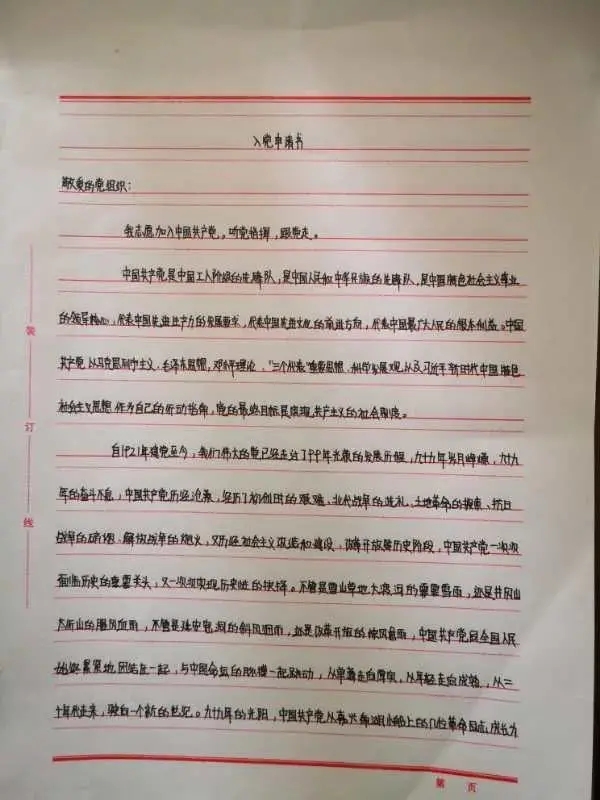 入党申请书
敬爱的党组织：
我志愿加入中国共产党，听党指挥，跟党走。
中国共产党是中国工人阶级的先锋队，是中国人民和中华民族的先锋队，是中国特色社会主义事业
的领导核心，代表中国先进生产力的发展要求，代表中国先进文化的前进方向，代表中国最广大人民的根本利益。中国
共产党以马克思列宁主义、毛泽东思想、邓小平理论、"三个代表"重要思想、科学发展观、以及习近平新时代中国特色
社会主义思想作为自己的行动指南，党的最终目标是实现共产主义的社会制度。
自1921年建党至今，我们伟大的党已经走过了99年光荣的发展历程，九十九年岁月峥嵘，九十九
年的奋斗不息，中国共产党历经沧桑，经历了初创时的艰难、北伐战争的洗礼、土地革命的探索、抗日
战争的硝烟、解放战争的炮火，又历经社会主义改造和建设，改革开放等历史阶段，中国共产党一次次
面临历史的重要关头，又一次次实现历史性的抉择。不管是雪山草地大渡河的雪雨，还是井冈山
太行山的腥风血雨，不管是延安窑洞的斜风细雨，还是改革开放的惊风急雨，中国共产党同全国人民
始终紧紧地团结在一起，与中国命运的脉搏一起跳动，从单薄走向厚实，从年轻走向成熟，从二
十年代走来，驶向一个新的世纪。九十九年的光阴，中国共产党从嘉兴南湖小船上的几位革命同志，成长为
装
订
线
第 页